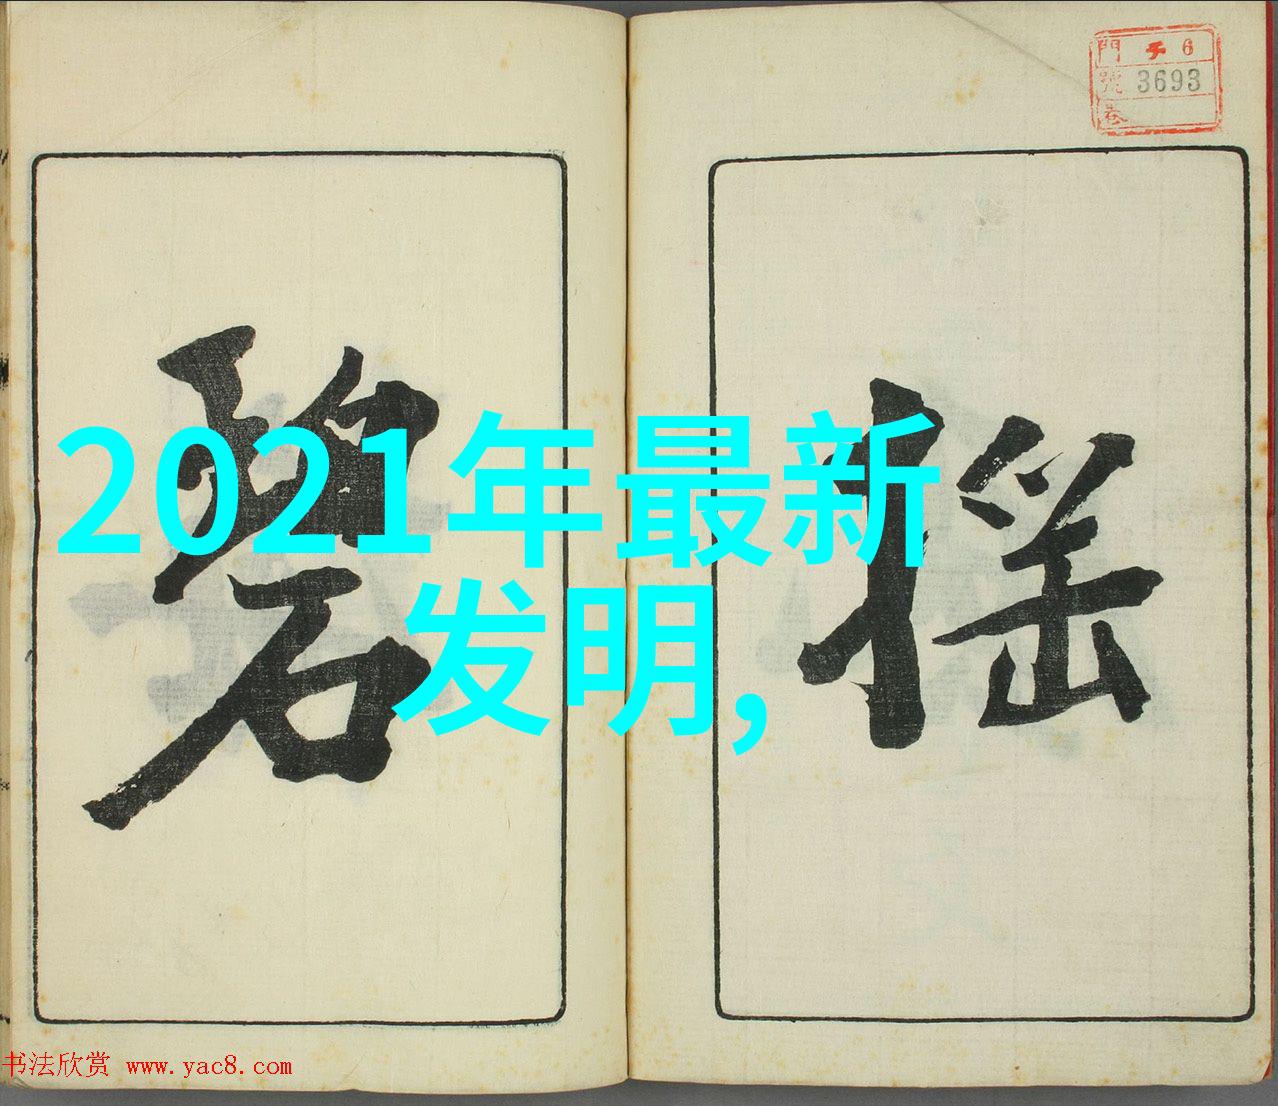 門 チ 6
號 3693
巻
搖
碧
2021年最新
发明,
书法欣赏 www.yac8.com